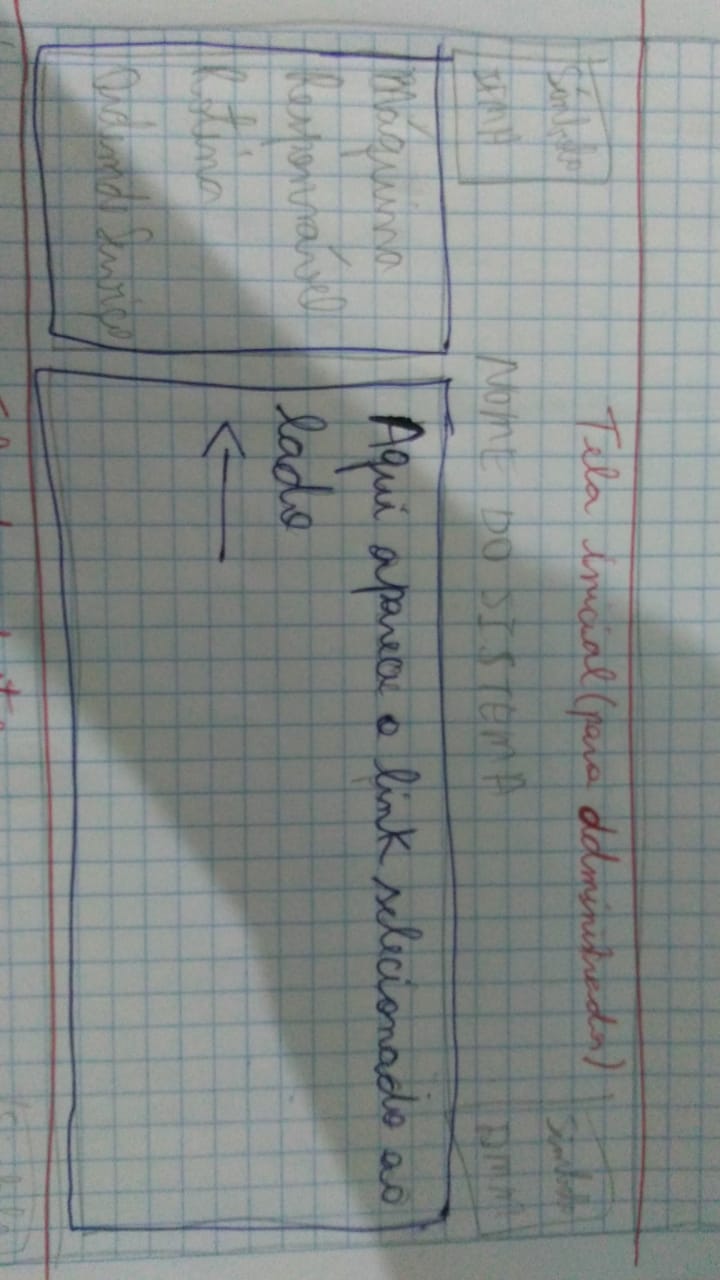 Tela inicial (para administrador)
Símbolo
IEMA
Símbolo
NOME DO SISTEMA
Máquina
Responsável
Rotina
Ordem de Serviço
Aqui aparece o link selecionado ao
lado